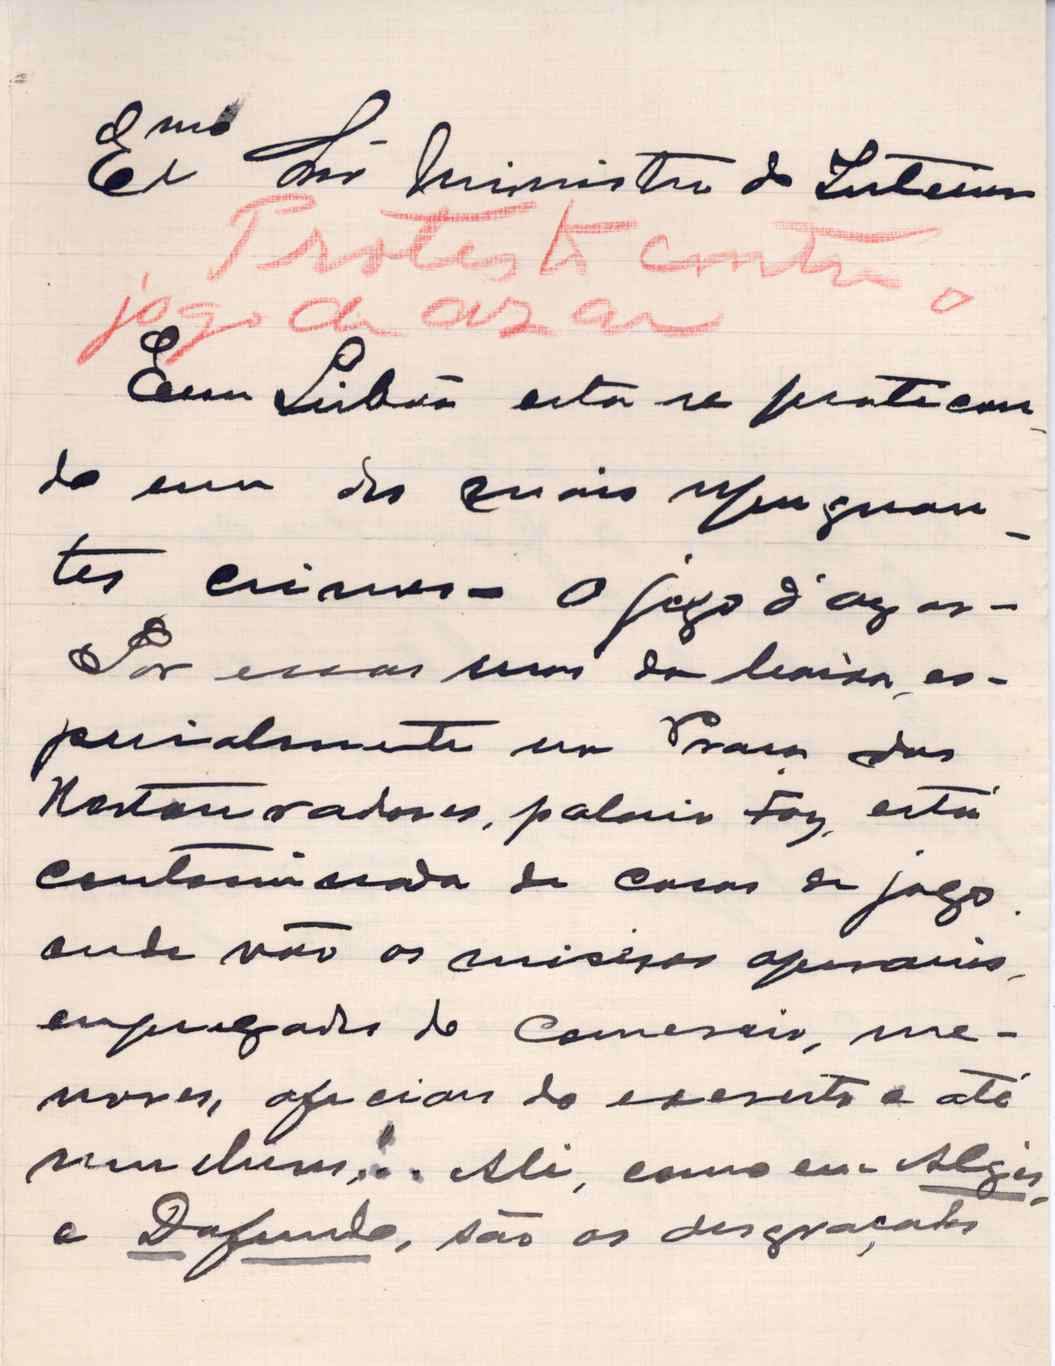 Exmo Snr Ministro do Interior
Protesto contra o
jogo de azar
Em Lisboa esta se pratican-
do um dos mais repugnan-
tes crimes - O jogo d'azar -
Por essas ruas da baixa, es-
pecialmente na Praça dos
Restauradores, palacio Foz, está
contaminada de casas de jogo
onde vão os miseros operarios,
empregados do Comercio, me-
nores, oficiais do exercito e até
mulheres,... Ali, como em Algés,
e Dafundo, são os desgraçados